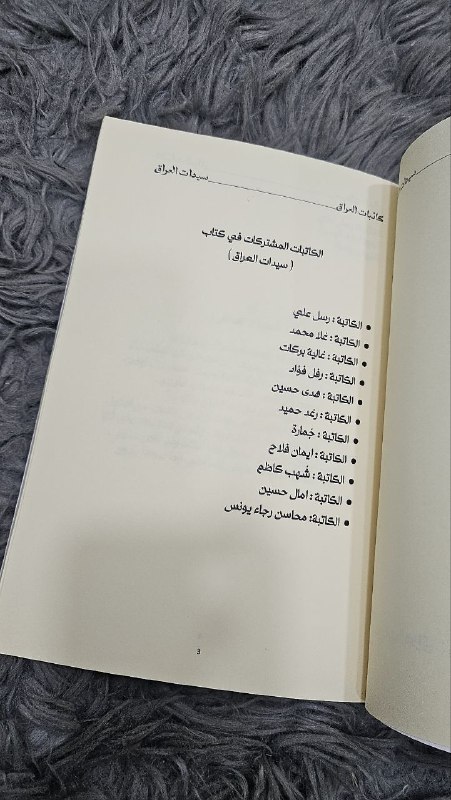 كاتبات العراق__________سيدات العراق
الكاتبات المشتركات في كتاب
( سيدات العراق )
• الكاتبة : رسل علي
• الكاتبة : علا محمد
• الكاتبة : غالية بركات
• الكاتبة : رفل فؤاد
• الكاتبة : هدى حسين
• الكاتبة : رغد حميد
• الكاتبة : جُمارة
• الكاتبة : ايمان فلاح
• الكاتبة : شُهب كاظم
• الكاتبة : امال حسين
• الكاتبة: محاسن رجاء يونس
3